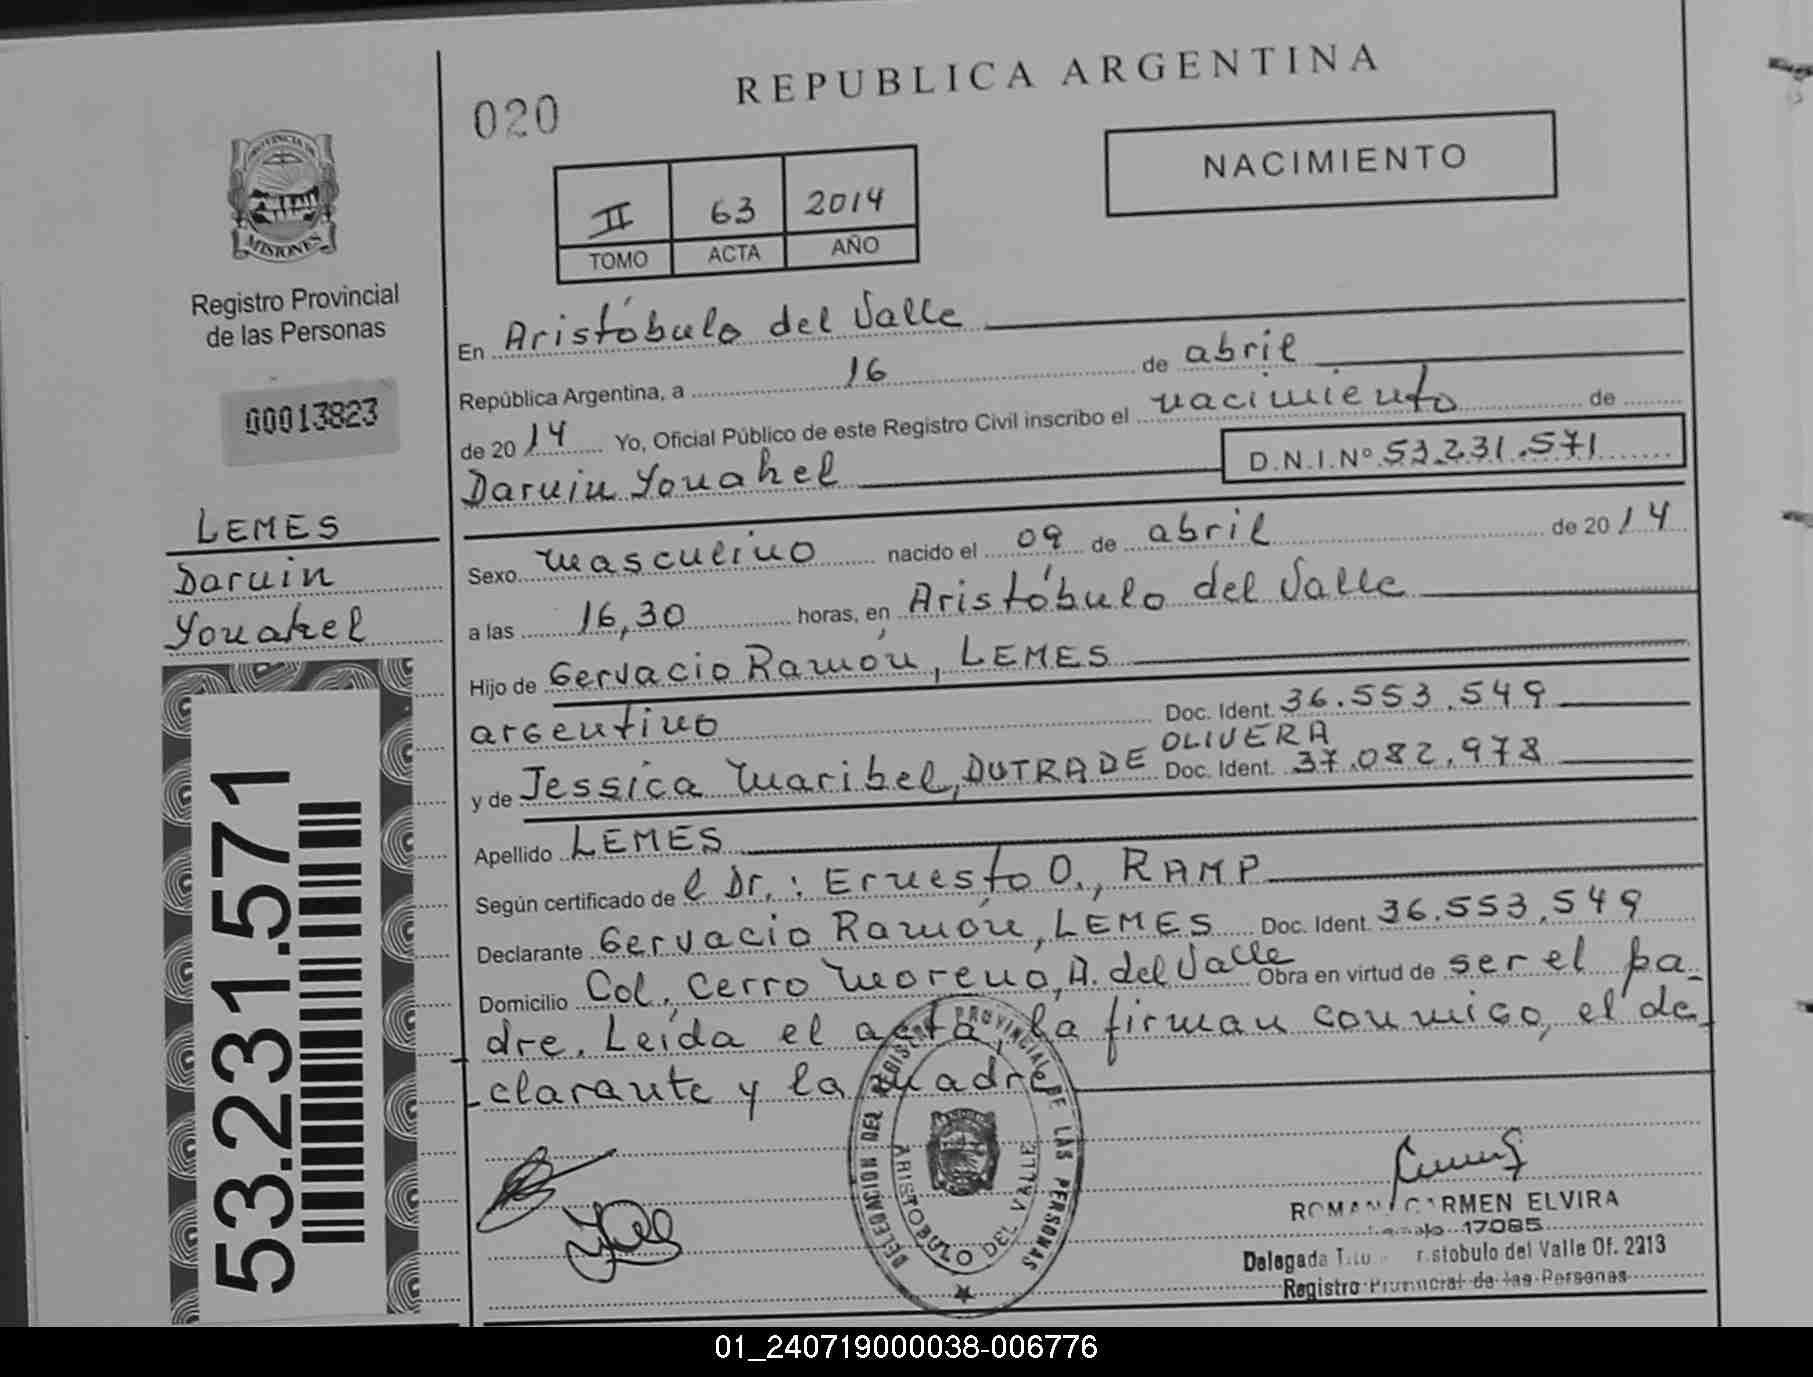 020
REPUBLICA ARGENTINA
NACIMIENTO
II 63 2014
TOMO ACTA AÑO
PROVINCIA DE
MISIONES
Registro Provincial
de las Personas
00013823
LEMES
Darwin
Yonahel
53.231.571
En Aristóbulo del Valle
República Argentina, a 16 de abril
de 2014 Yo, Oficial Público de este Registro Civil inscribo el nacimiento de
Darwin Yonahel D.N.I.Nº 53.231.571
Sexo masculino nacido el 09 de abril de 2014
a las 16,30 horas, en Aristóbulo del Valle
Hijo de Gervacio Ramón, LEMES
argentino Doc. Ident. 36.553.549
OLIVERA
y de Jessica Maribel, DUTRA DE Doc. Ident. 37.082.978
Apellido LEMES
Según certificado de l Dr.: Ernesto O., RAMP
Declarante Gervacio Ramón, LEMES Doc. Ident. 36.553.549
Domicilio Col. Cerro Moreno, A. del Valle Obra en virtud de ser el pa-
dre. Leída el acta, la firman conmigo, el de-
clarante y la madre
DELEGACION DEL REGISTRO PROVINCIAL DE LAS PERSONAS
ARISTOBULO DEL VALLE
ROMAN CARMEN ELVIRA
17085
Delegada stobulo del Valle Of. 2213
Registro Provincial de las Personas
01_240719000038-006776